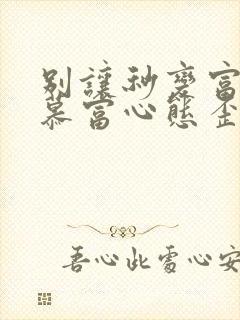 別讓秒變富
慕富心態歪
吾心此處心安